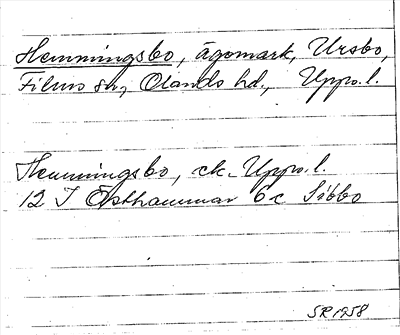 Hemmingsbo, ägomark, Ursbo,
Films sn, Olands hd., Upps.l.
Hemmingsbo, ek. Upps.l.
12 I Östhammar 6c Sibbo
SR 1958